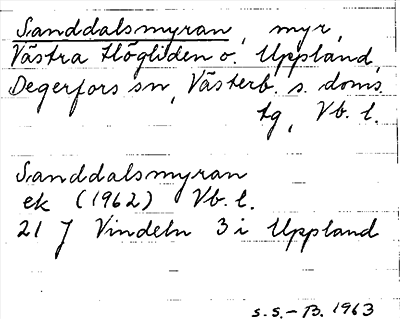 Sanddalsmyran, myr,
Västra Högliden o. Uppland,
Degerfors sn, Västerb. s. doms.
tg, Vb. l.
Sanddalsmyran
ek (1962) Vb. l.
21 J Vindeln 3 i Uppland
S.S.-B. 1963